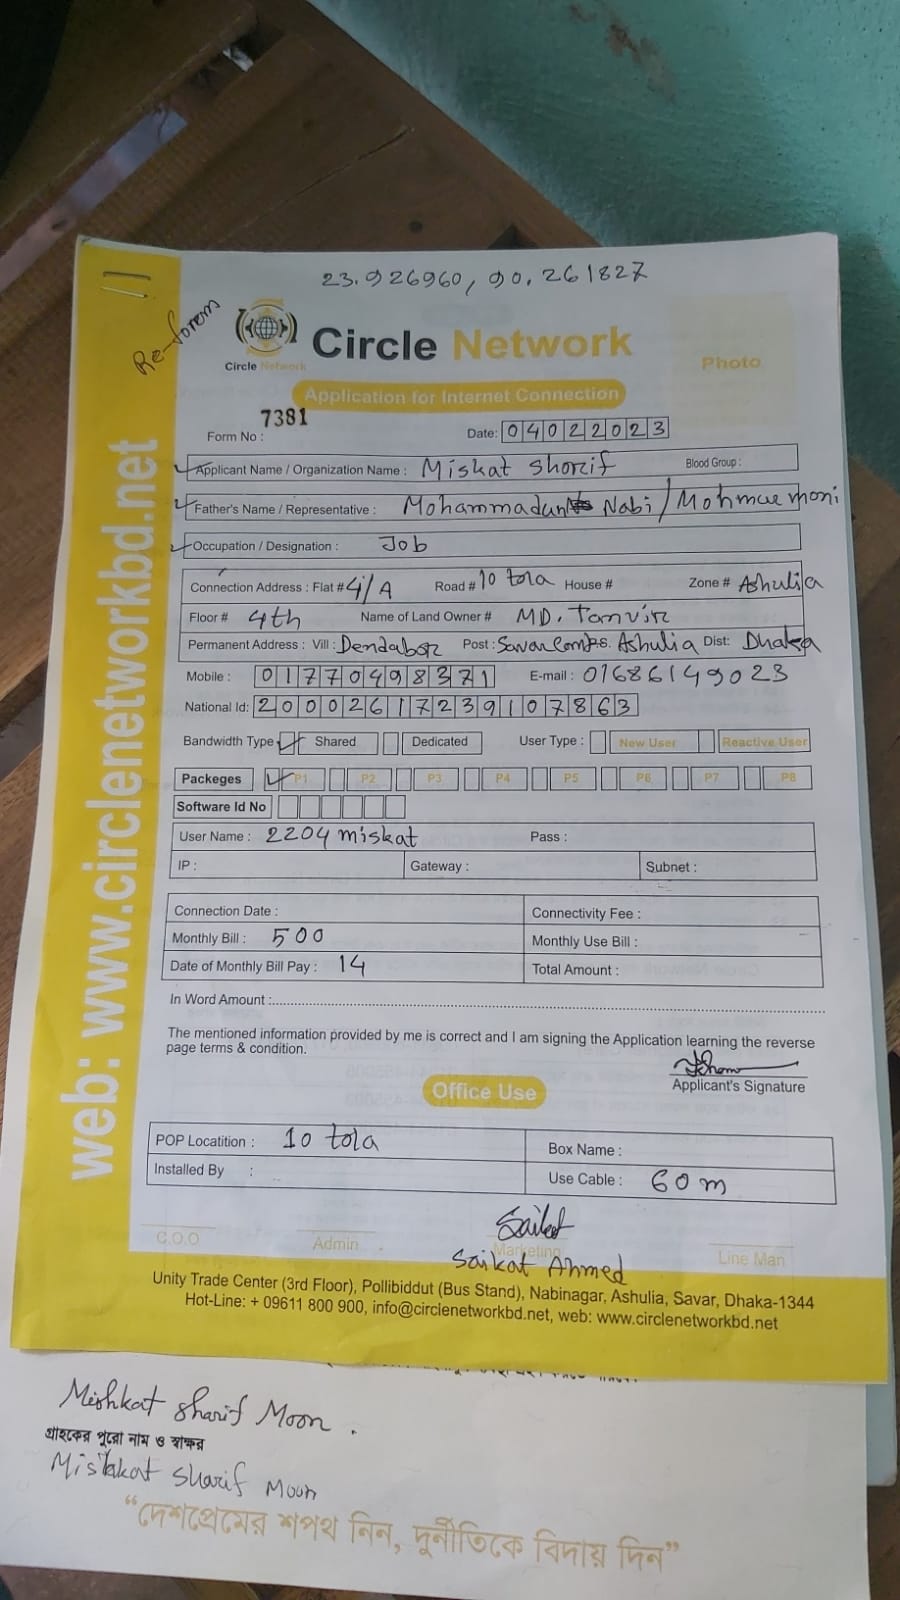 23.926960, 90.261827
Re-forem
Circle Network
Circle Network
Photo
Application for Internet Connection
7381
Form No :
Date: 04022023
Applicant Name / Organization Name : Miskat Shorif Blood Group :
Father's Name / Representative : Mohammadun Nabi / Mohmue moni
Occupation / Designation : Job
Connection Address : Flat # 4/A Road # 10 tola House # Zone # Ashulia
Floor # 4th Name of Land Owner # MD. Tanvir
Permanent Address : Vill : Dendabor Post : Savar Ashulia Dist: Dhaka
Mobile : 01770498371 E-mail : 01686149023
National Id: 20002617239107863
Bandwidth Type Shared Dedicated User Type : New User Reactive User
Packeges P1 P2 P3 P4 P5 P6 P7 P8
Software Id No
User Name : 2204 miskat Pass :
IP : Gateway : Subnet :
Connection Date : Connectivity Fee :
Monthly Bill : 500 Monthly Use Bill :
Date of Monthly Bill Pay : 14 Total Amount :
In Word Amount :
The mentioned information provided by me is correct and I am signing the Application learning the reverse
page terms & condition.
Applicant's Signature
Office Use
POP Locatition : 10 tola Box Name :
Installed By : Use Cable : 60 m
Saikat
C.O.O Admin Marketing Line Man
Saikat Ahmed
Unity Trade Center (3rd Floor), Pollibiddut (Bus Stand), Nabinagar, Ashulia, Savar, Dhaka-1344
Hot-Line: + 09611 800 900, info@circlenetworkbd.net, web: www.circlenetworkbd.net
web: www.circlenetworkbd.net
Mishkat Sharif Moon .
গ্রাহকের পুরো নাম ও স্বাক্ষর
Mishkat Sharif Moon
“দেশপ্রেমের শপথ নিন, দুর্নীতিকে বিদায় দিন”